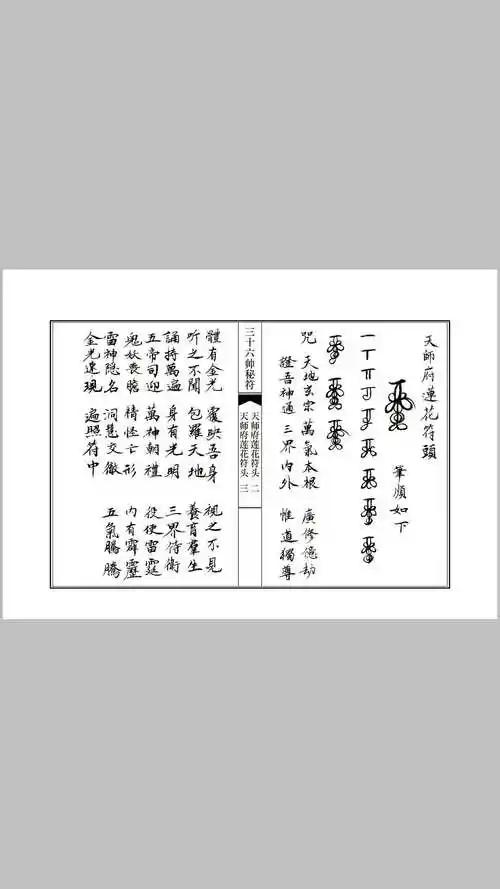 天師府蓮花符頭
筆順如下
咒 天地玄宗 萬氣本根 廣修億劫
證吾神通 三界内外 惟道獨尊
三十六帅秘符
天师府莲花符头 二
天师府莲花符头 三
體有金光 覆映吾身 視之不見
听之不聞 包羅天地 養育羣生
誦持萬遍 身有光明 三界侍衛
五帝司迎 萬神朝禮 役使雷霆
鬼妖喪膽 精怪亡形 内有霹靂
雷神隐名 洞慧交徹 五氣騰騰
金光速現 遍照符中